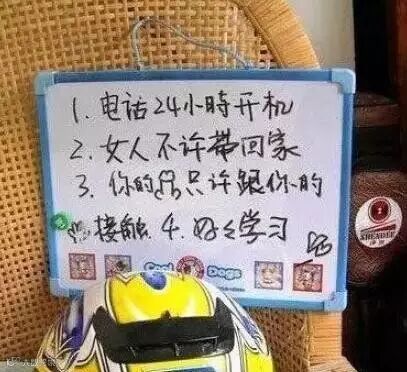 1. 电话24小時开机
2. 女人不许带回家
3. 你的只许跟你的
接触 4. 好々学习
Cool Dogs
SHENDEE